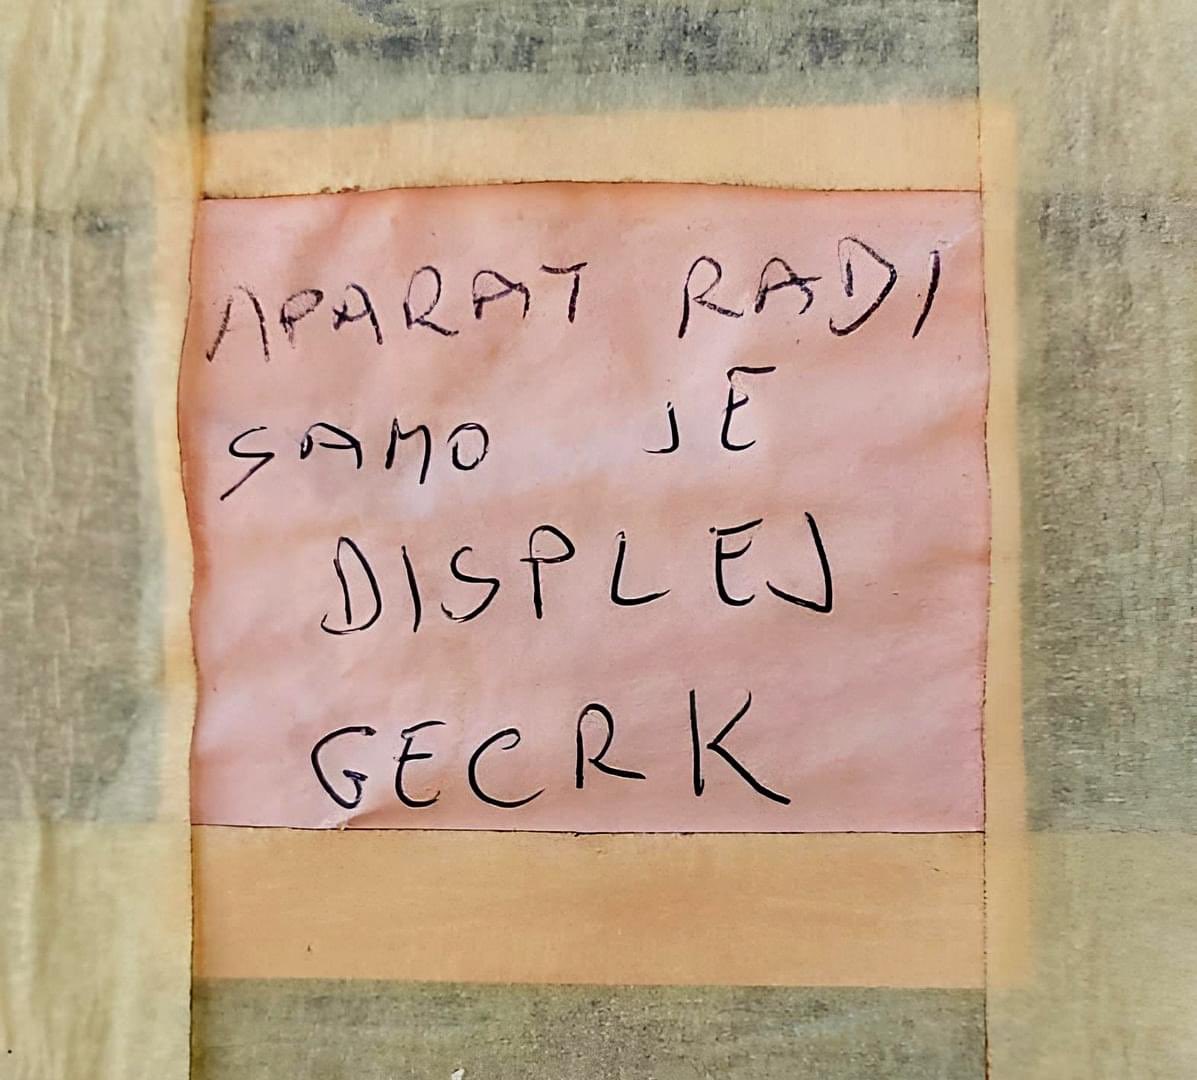 APARAT RADI
SAMO JE
DISPLEJ
GECRK